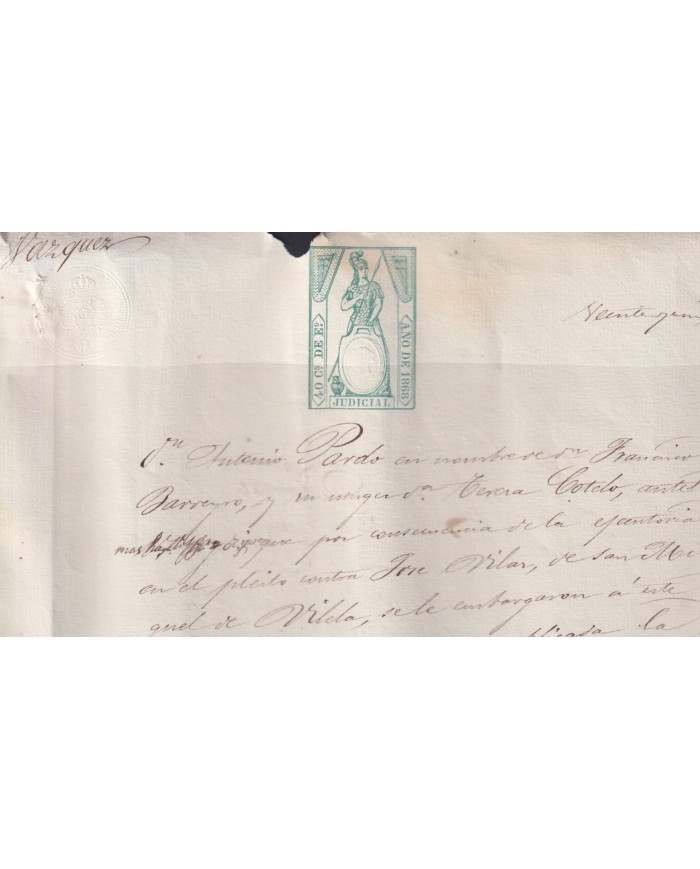 Vazquez
40 Cs DE Eo.
AÑO DE 1868
JUDICIAL
Veinte
Dn. Antonio Pardo en nombre de Dn. Francisco
Barreyro, y su muger Da. Teresa Cotelo, ante
mas haya lugar
digo: que por consecuencia de la ejecutoria
en el pleito contra Jose Vilar, de San Mi
guel de Vilela, se le embargaron á este
la